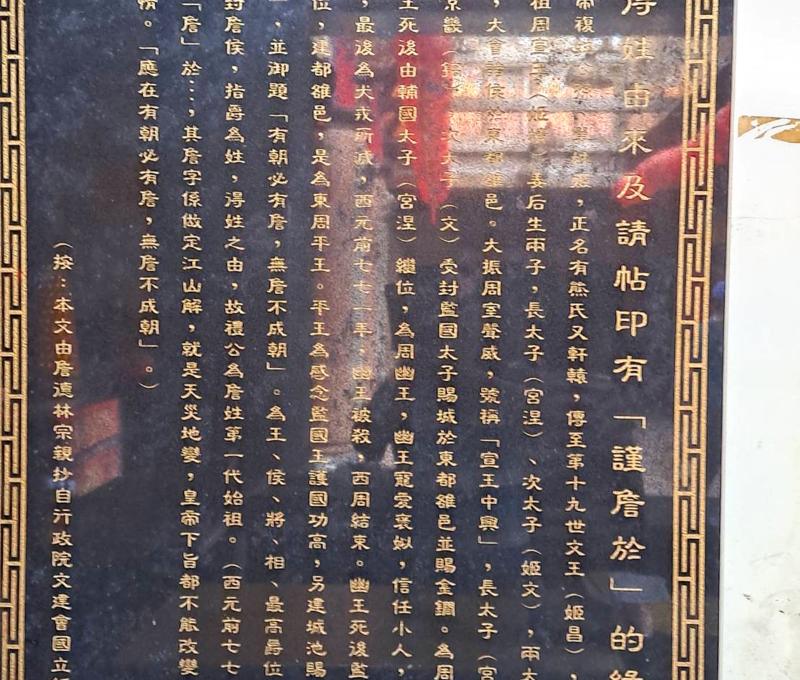 得姓由來及請帖印有「謹詹於」的緣
正名有熊氏又軒轅，傳至第十九世文王（姬昌），
祖周宣王 姜后生兩子，長太子（宮涅）、次太子（姬文），兩太
，大會諸侯於東都雒邑。大振周室聲威，號稱「宣王中興」，長太子（宮
京畿 次太子（文）受封監國太子賜城於東都雒邑並賜金鐧。為周
王死後由輔國太子（宮涅）繼位，為周幽王，幽王寵愛褒姒，信任小人，
，最後為犬戎所滅，西元前七七一年，幽王被殺，西周結束。幽王死後監
位，建都雒邑，是為東周平王。平王為感念監國王護國功高，另建城池賜
，並御題「有朝必有詹，無詹不成朝」。為王、侯、將、相、最高爵位
封詹侯，指爵為姓，得姓之由，故禮公為詹姓第一代始祖。（西元前七七
「詹」於…，其詹字係做定江山解，就是天災地變，皇帝下旨都不能改變
情。「應在有朝必有詹，無詹不成朝」。）
（按：本文由詹德林宗親抄自行政院文建會國立